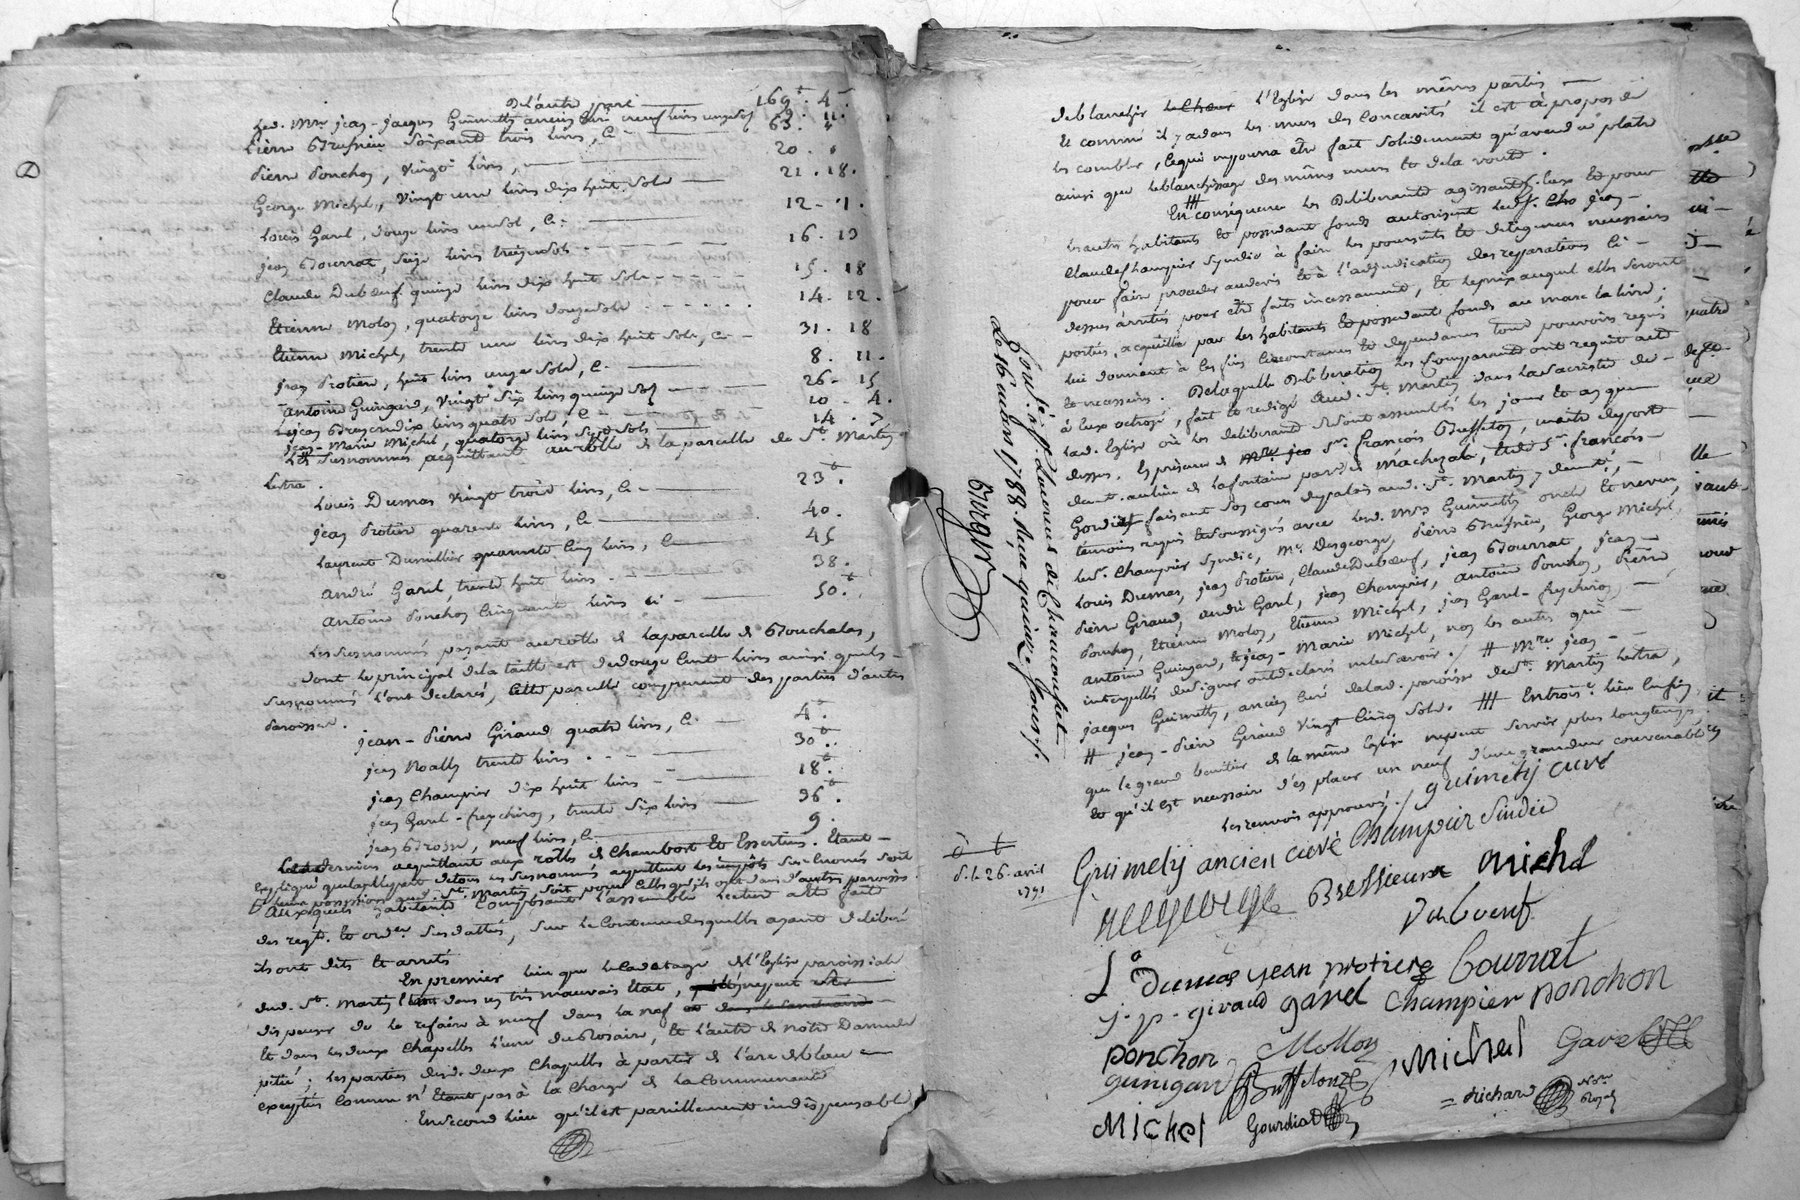 De l'autre part — 169ᵗ. 4ˢ.
Led. Mre jean-jacques Guimelly ancien Curé neuf livres onze sols 9. 11.
Pierre Brefsieu Soixante trois livres, Cy — 63. "
Pierre Ponchon, vingt livres, — 20. "
George Michel, vingt une livres dix huit sols — 21. 18.
Louis Garel, douze livres un sol, Cy — 12. 1.
jean Bourrat, seize livres treize sols — 16. 13
Claude Duboeuf quinze livres dix huit sols — 15. 18
Etienne Molon, quatorze livres douze sols — 14. 12.
Etienne Michel, trente une livres dix huit sols, Cy — 31. 18
jean Protiere, huit livres onze sols, Cy — 8. 11.
Antoine Guingard, vingt six livres quinze sols — 26. 15
jean dix livres quatre sols, Cy — 10. 4.
jean-Marie Michel, quatorze livres sept sols — 14. 7
Les susnommés acquittant au rolle de la parcelle de St. Martin
Lestra.
Louis Dumas vingt trois livres, Cy — 23ᵗ.
jean Protiere quarente livres, Cy — 40.
Laurent Dumillier quarente cinq livres, Cy — 45
André Garel trente huit livres — 38.
Antoine Ponchon Cinquante livres ci — 50ᵗ.
Les susnommés payant au rolle de la parcelle de Bouchalas,
dont le principal de la taille est de douze cent livres ainsi que les
susnommés l'ont déclaré, cette parcelle comprenant des parties d'autres
paroisses.
jean-Pierre Giraud quatre livres, Cy — 4ᵗ.
jean Noally trente livres — 30ᵗ.
jean Champier dix huit livres — 18ᵗ.
jean Garel-freychinon, trente six livres — 36ᵗ.
jean Brosse, neuf livres, Cy — 9.
Ces derniers acquittant aux rolles de Chambost et Essertines. Etant
Expliqué que la plupart de tous les susnommés acquittent les impôts sus-énoncés soit
leurs possessions aud. St. Martin, soit pour celles qu'ils ont dans d'autres paroisses.
Auxquels habitants Composant l'assemblée lecture a été faite
des reqt. et ordce. susdattés, sur le Contenu desquelles ayant délibéré
ils ont dits et arrêté
En premier lieu que le Cadetage de l'Eglise paroissiale
dud. St. Martin étant dans un très mauvais Etat, ne peut se
dispenser de le refaire à neuf dans la nef
et dans les deux Chapelles l'une du Rosaire, et l'autre de notre Dame de
pitié; les parties desd. deux Chapelles à partir de l'arc de
exceptées comme n'étant pas à la Charge de la Communauté
En second lieu qu'il est pareillement indispensable
de blanchir l'Eglise dans les mêmes parties
Et comme il y a dans les murs des Concavités il est à propos de
les combler, ce qui ne pourra être fait solidement qu'avec du plâtre
ainsi que le blanchissage des mêmes murs et de la voute.
#
En conséquence les Délibérants agissant pr. eux et pour
les autres habitants et possédant fonds autorisent led. sr. jean-
Claude Champier Syndic à faire les poursuites et diligences necessaires
pour faire procéder au devis et à l'adjudication des reparations Cy-
dessus arrêtées pour être faites incessamment, et le prix auquel elles seront
portées, acquitté par les habitants et possédant fonds au marc la livre;
lui donnant à ces fins circonstances et dependances tout pouvoirs requis
et necessaires. De laquelle Deliberation les Comparants ont requis acte
à eux octroyé, fait et redigé aud. St. Martin dans la Sacristie de
lad. Eglise où les deliberants se sont assemblés les jour et an que
dessus, En présence de sr. françois Buffeton, maitre
demt. au lieu de la fontaine parsse. de Machezal, et de sr. françois
Gourdiat faisant son cours du palais aud. St. Martin y demt.,
temoins requis et soussignés avec lesd. Mrs Guimelly oncle et neveu,
led. sr. Champier Syndic, Me. Desgeorge, Pierre Brefsieu, George Michel,
Louis Dumas, jean Protiere, Claude Duboeuf, jean Bourrat jean-
Pierre Giraud, andré Garel, jean Champier, antoine Ponchon, Pierre
Ponchon, Etienne Molon, Etienne Michel, jean Garel-freychinon,
antoine Guingard, et jean-Marie Michel, non les autres qui
interpellés de signer ont déclaré ne le savoir. / # Mre jean-
jacques Guimelly, ancien Curé de lad. paroisse de St. Martin Lestra,
# jean-Pierre Giraud vingt cinq sols. # En troise. lieu Enfin
que le grand benitier de la même Eglise ne peut servir plus longtemps
et qu'il est necessaire d'en placer un neuf d'une grandeur convenable
les renvois approuvés. / guimelly curé
Guimelly ancien curé Champier Sindic
Desgeorge Bressieux Michel
Duboeuf
Ls Dumas jean protiere Bourrat
j. p. giraud garel Champier ponchon
ponchon Mollon Michel Garel
guingard Buffeton
Michel Gourdiat Richard Nore Royal
Le 16 avril 1788. Reçu quinze sous
Berger
d. le 26. avril
1791